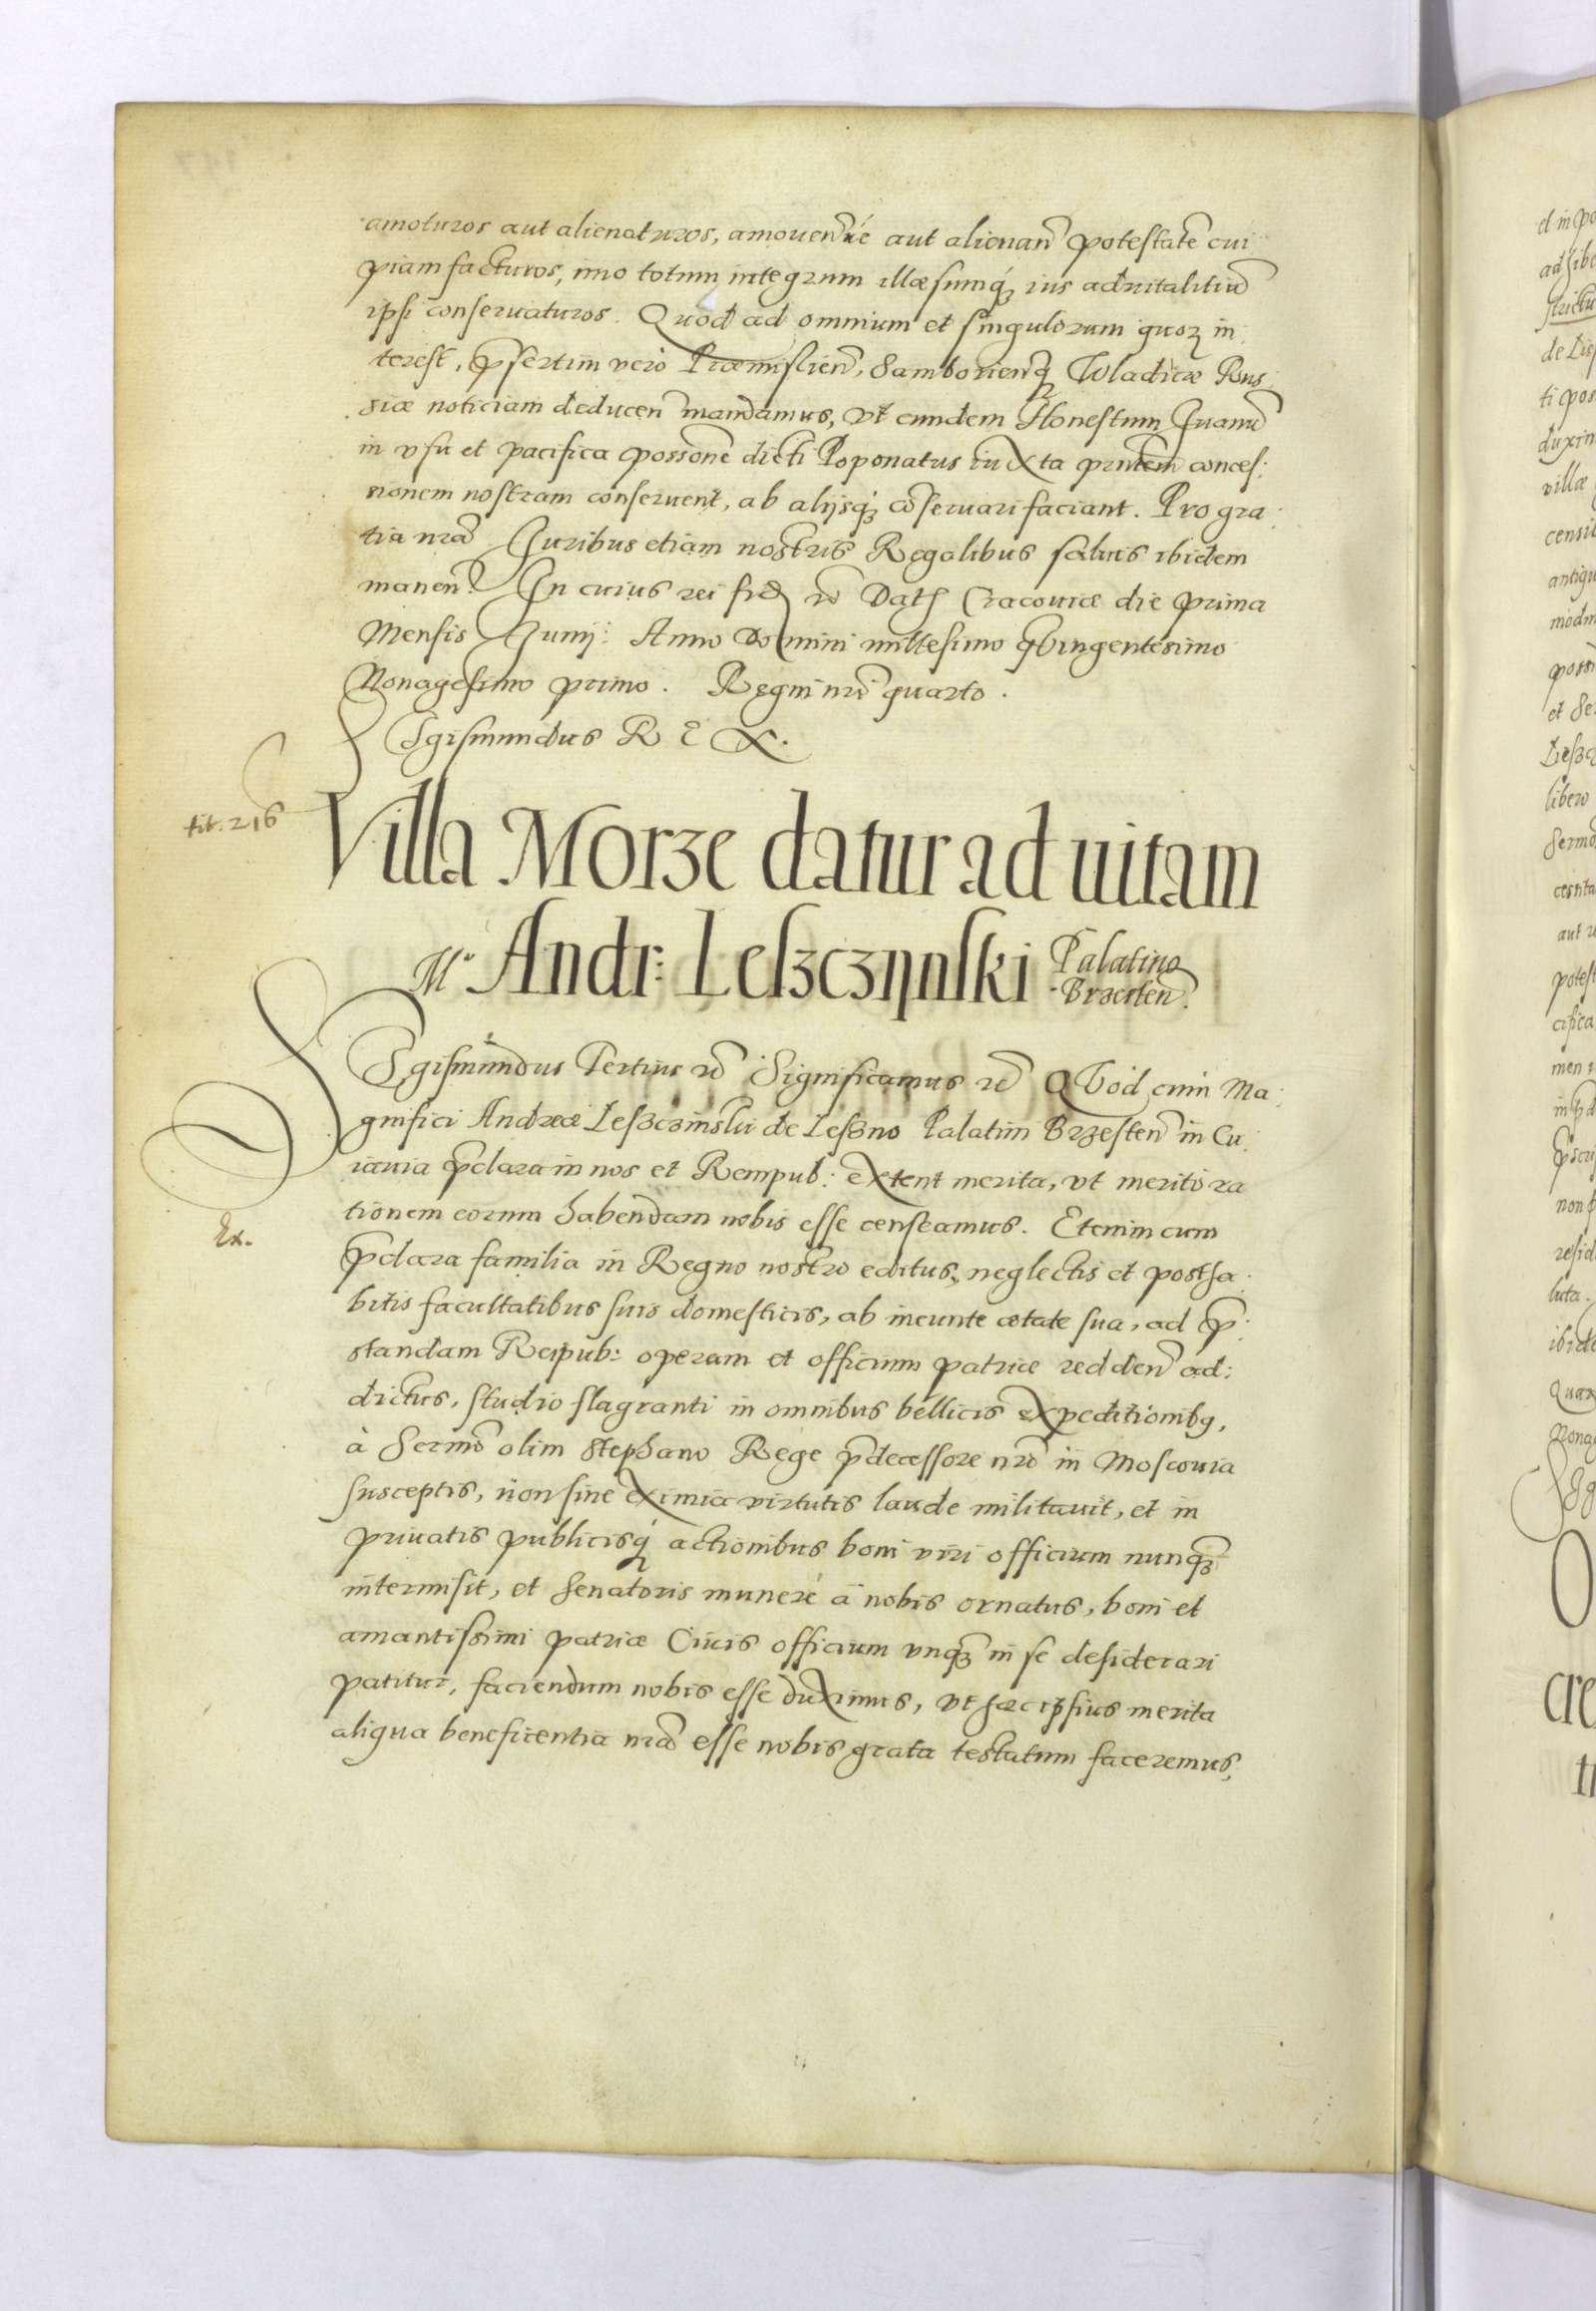 amoturos aut alienaturos, amouendiue aut alienand potestatē cui
piam facturos, imo totum integrum illæsumq́ꝫ ius aduitalitiū
ipsi conseruaturos. Quod ad omnium et singulorum quorꝫ in
terest, p̄sertim vero Præmislien̄, Samborienq́ꝫ Wladicæ Rus
siæ noticiam deducen̄ mandamus, vt eundem Honestum Iuanū
in vsu et pacifica possonē dicti Poponatus iuxta prn̄tem conces:
sionem nostram conseruent, ab alijsq́ꝫ cōseruari faciant. Pro gra:
tia nrā Iuribus etiam nostris Regalibus saluis ibidem
manen̄. In cuius rei fid rc̄ Dat Cracouiæ die prima
Mensis Iunij: Anno Domini millesimo qvingentesimo
Nonagesimo primo. Regni nrī quarto.
Sigismundus R E X.
tit. 216
Villa Morze datur ad uitam
Mco Andr: Leszczynski Palatino
Brzesten̄.
Sigismundus Tertius rc̄ Significamus rc̄ Qvod cum Ma:
gnifici Andreæ Leszczinski de Leszno Palatini Brzesten̄ in Cu:
iauia p̄clara in nos et Rempub: extent merita, vt merito ra
tionem eorum habendam nobis esse censeamus. Etenim cum
Ex.
p̄clara familia in Regno nostro editus, neglectis et postha:
bitis facultatibus suis domesticis, ab ineunte ætate sua, ad p̄:
standam Reipub: operam et officium patriæ redden̄ ad:
dictus, studio flagranti in omnibus bellicis expeditionibꝫ,
à Sermō olim Stephano Rege p̄decessore nrō in Moscouia
susceptis, non sine eximia virtutis laude militauit, et in
priuatis publicisq́ꝫ actionibus boni viri officium nunq̄ꝫ
intermisit, et Senatoris munere à nobis ornatus, boni et
amantissimi patriæ Ciuis officium vnq̄ꝫ in se desiderari
patitur, faciendum nobis esse duximus, vt hæc ipsius merita
aliqua beneficentia nrā esse nobis grata testatum faceremus,